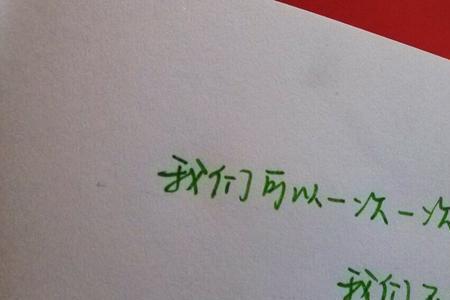 我们可以一次一次
我们